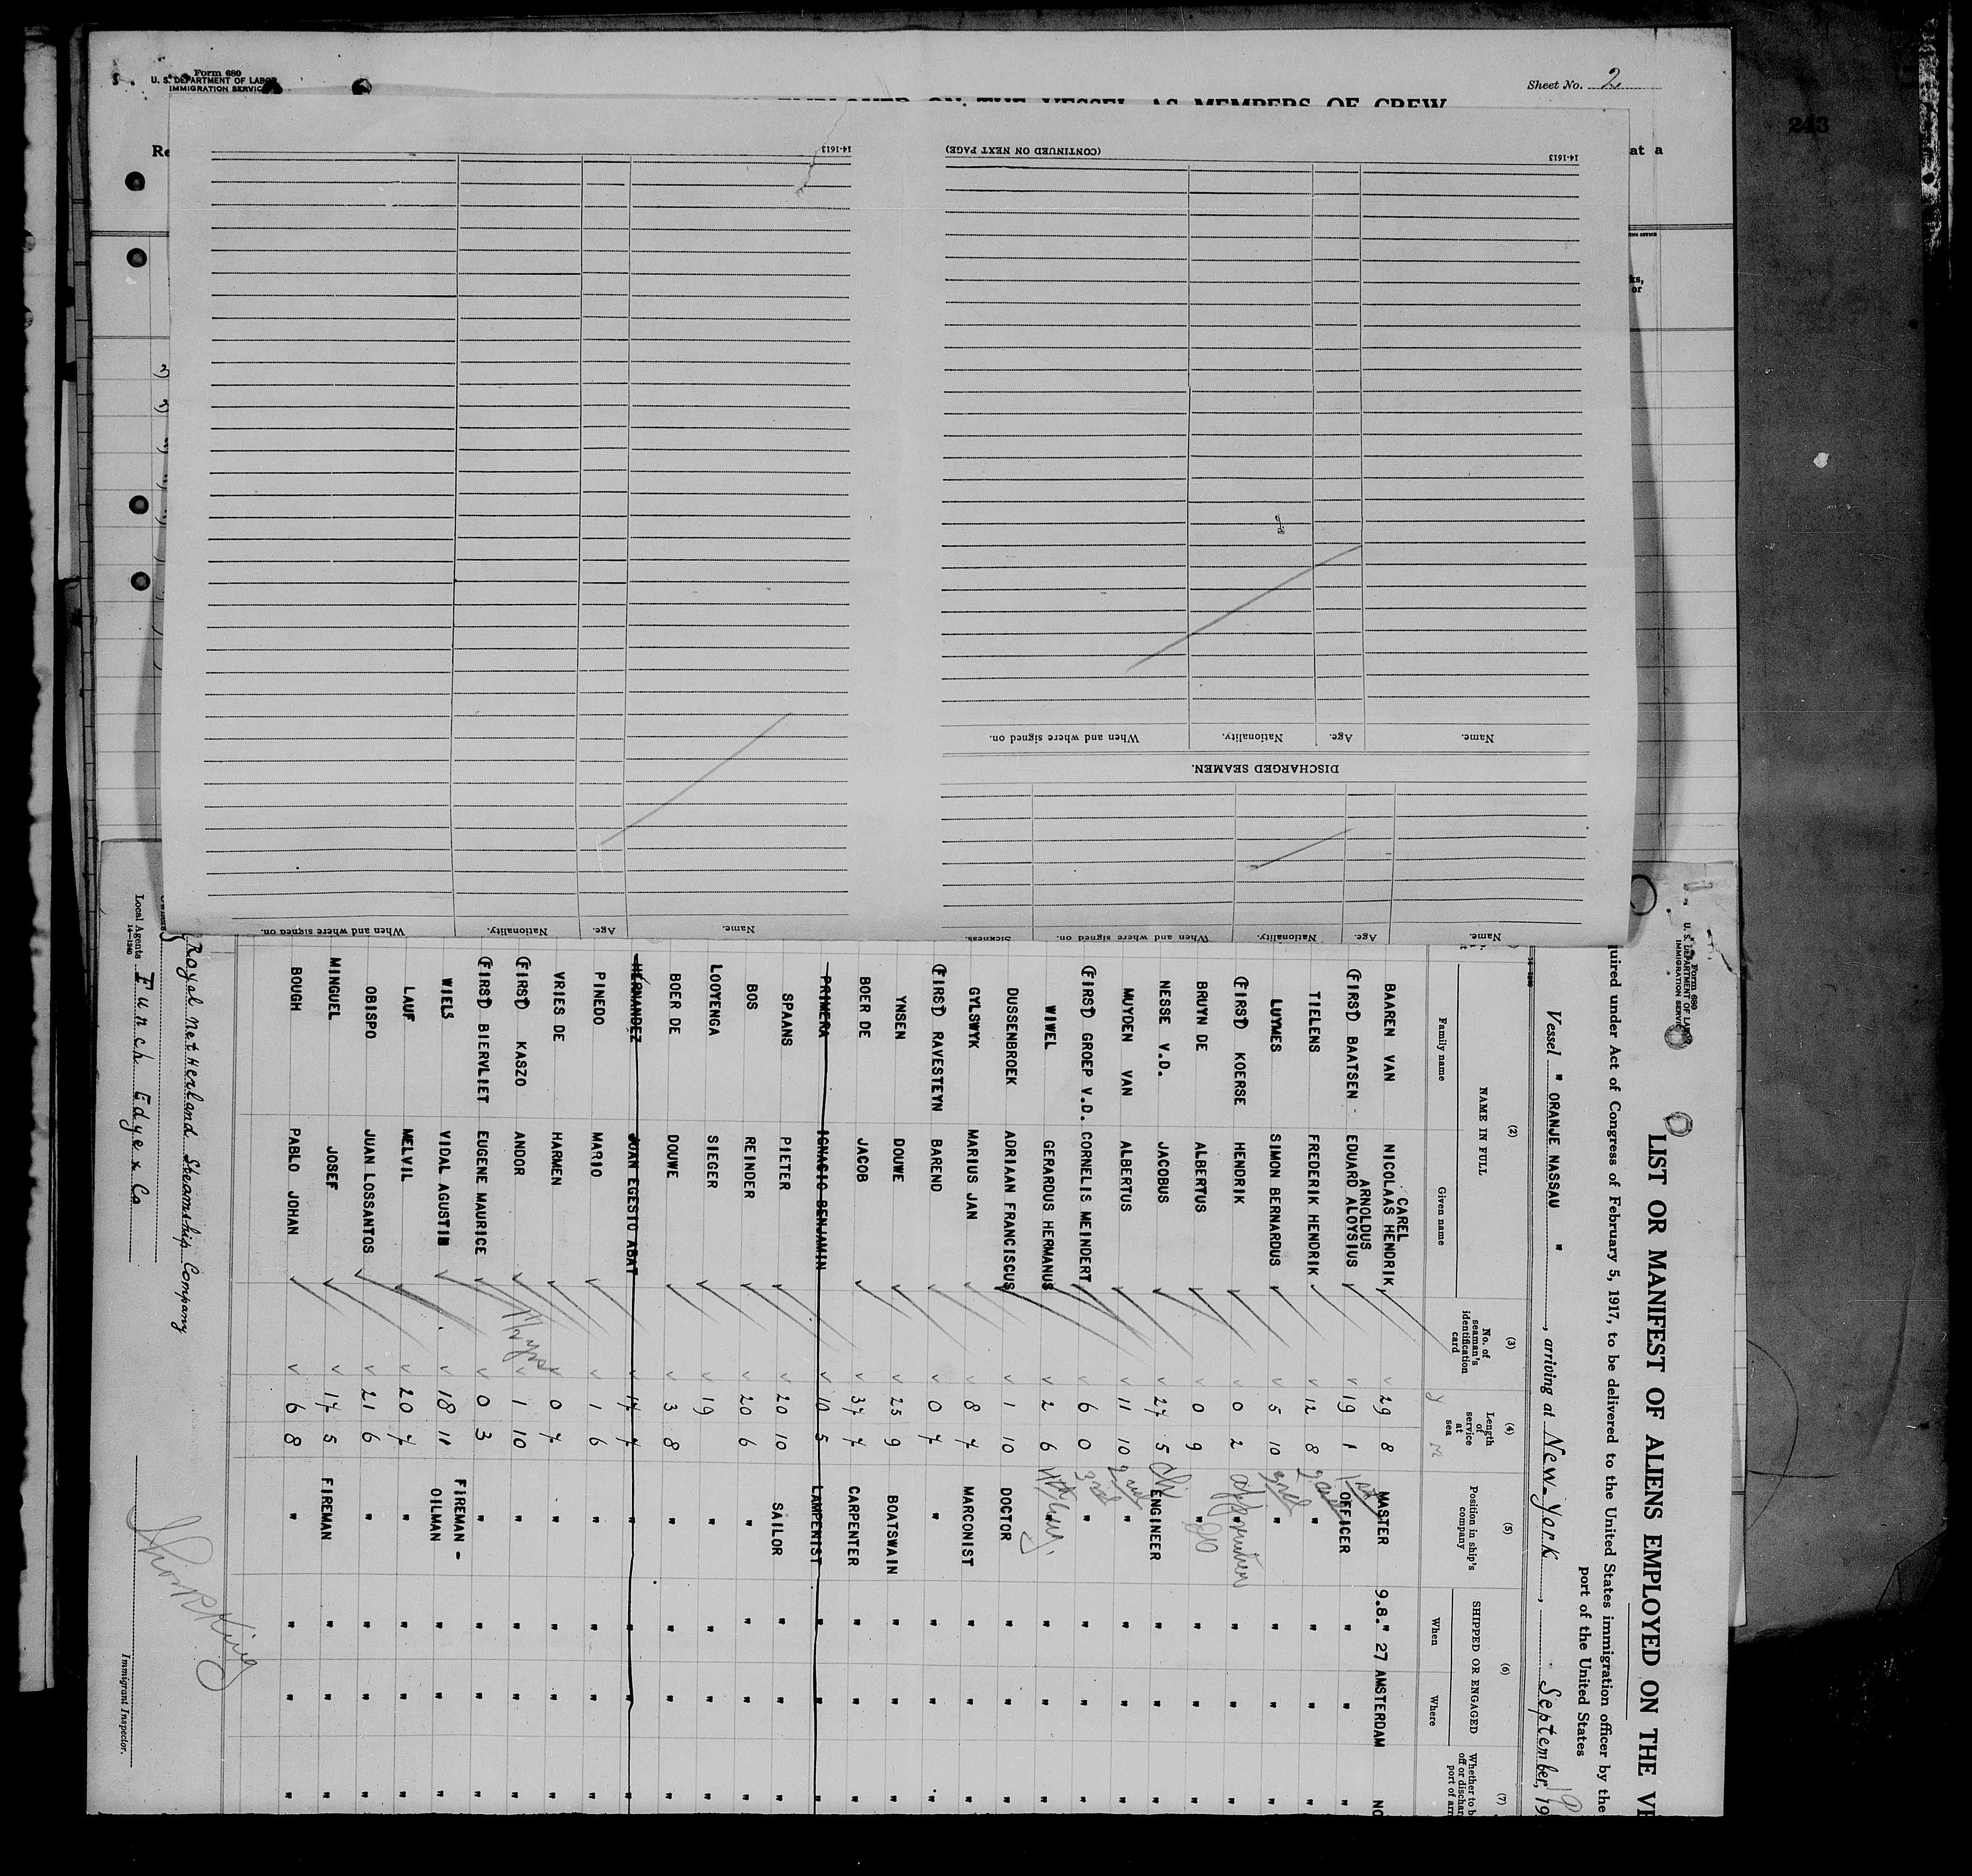 Form 680
U. S. DEPARTMENT OF LABOR
IMMIGRATION SERVICE
Sheet No. 2
EMPLOYED ON THE VESSEL AS MEMBERS OF CREW
243
Re
at a
ks,
or
14-1613
(CONTINUED ON NEXT PAGE)
14-1613
When and where signed on.
Nationality.
Age.
Name.
DISCHARGED SEAMEN.
When and where signed on.
Nationality.
Age.
Name.
Sickness.
When and where signed on.
Nationality.
Age.
Name.
Form 680
U. S. DEPARTMENT OF LABOR
IMMIGRATION SERVICE
LIST OR MANIFEST OF ALIENS EMPLOYED ON THE VE
quired under Act of Congress of February 5, 1917, to be delivered to the United States immigration officer by the
port of the United States
Vessel " ORANJE NASSAU " , arriving at New-York , September, 19
(2) (3) (4) (5) (6) (7)
NAME IN FULL
Family name Given name
No. of seaman's identification card
Length of service at sea
Position in ship's company
SHIPPED OR ENGAGED
When Where
Whether to b
off or dischar
port of arr
Y M
CAREL
BAAREN VAN NICOLAAS HENDRIK 29 8 MASTER 9.8." 27 AMSTERDAM NO
ARNOLDUS
(FIRST) BAATSEN EDUARD ALOYSIUS 19 1 1st OFFICER " " "
TIELENS FREDERIK HENDRIK 12 8 2nd " " " "
LUYMES SIMON BERNARDUS 5 10 3rd " " " "
(FIRST) KOERSE HENDRIK 0 2 apprentice " " " "
BRUYN DE ALBERTUS 0 9 " do " " "
NESSE V.D. JACOBUS 27 5 Ch ENGINEER " " "
MUYDEN VAN ALBERTUS 11 10 2nd " " " "
(FIRST) GROEP V.D. CORNELIS MEINDERT 6 0 3rd " " " "
WIWEL GERARDUS HERMANUS 2 6 4th " " " "
DUSSENBROEK ADRIAAN FRANCISCUS 1 10 DOCTOR " " "
GYLSWYK MARIUS JAN 8 7 MARCONIST " " "
(FIRST) RAVESTEYN BAREND 0 7 " " " "
YNSEN DOUWE 25 9 BOATSWAIN " " "
BOER DE JACOB 37 7 CARPENTER " " "
PRIMERA IGNACIO BENJAMIN 10 5 LAMPENIST " " "
SPAANS PIETER 20 10 SAILOR " " "
BOS REINDER 20 6 " " " "
LOOYENGA SIEGER 19 " " " "
BOER DE DOUWE 3 8 " " " "
HERNANDEZ JUAN EGESIO ABAT 17 7 " " " "
PINEDO MARIO 1 6 " " " "
VRIES DE HARMEN 0 7 " " " "
(FIRST) KASZO ANDOR 1 10 " " " "
(FIRST) BIERVLIET EUGENE MAURICE 0 3 " " " "
WIELS VIDAL AGUSTIN 18 11 FIREMAN - OILMAN " " "
LAUF MELVIL 20 7 " " " "
OBISPO JUAN LOSSANTOS 21 6 " " " "
MINGUEL JOSEF 17 5 FIREMAN " " "
BOUGH PABLO JOHAN 6 8 " " " "
Owners Royal Netherland Steamship Company
Local Agents Funch Edye & Co
14-1240
Immigrant Inspector.